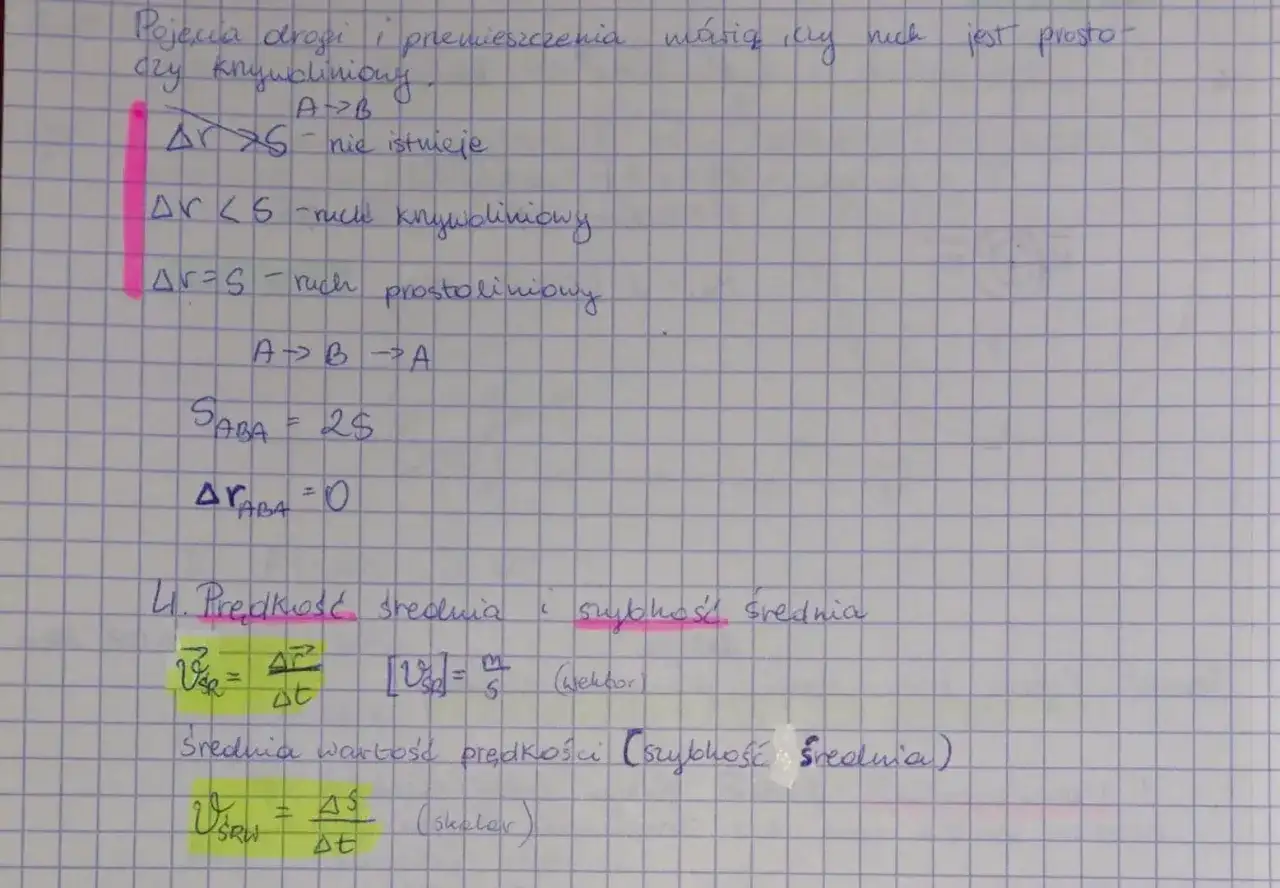 Pojęcia drogi i przemieszczenia mówią, czy ruch jest prosto-
czy krzywoliniowy.
A → B
Δr > S - nie istnieje
Δr < S - ruch krzywoliniowy
Δr = S - ruch prostoliniowy
A → B → A
S_ABA = 2S
Δr_ABA = 0
4. Prędkość średnia i szybkość średnia
v⃗_ŚR = Δr⃗/Δt [v_ŚR] = m/s (wektor)
Średnia wartość prędkości (szybkość średnia)
v_ŚRW = ΔS/Δt (skalar)